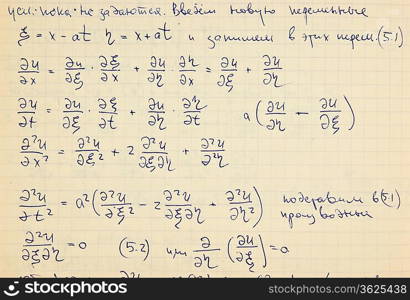 усл. пока не задаются. Введём новую переменные
ξ = x - at η = x + at и запишем в этих перем. (5.1)
∂u/∂x = ∂u/∂ξ · ∂ξ/∂x + ∂u/∂η · ∂η/∂x = ∂u/∂ξ + ∂u/∂η
∂u/∂t = ∂u/∂ξ · ∂ξ/∂t + ∂u/∂η · ∂η/∂t a(∂u/∂η - ∂u/∂ξ)
∂²u/∂x² = ∂²u/∂ξ² + 2 ∂²u/∂ξ∂η + ∂²u/∂²η
∂²u/∂t² = a²(∂²u/∂ξ² - 2 ∂²u/∂ξ∂η + ∂²u/∂η²) подставим в (5.1)
производные
∂²u/∂ξ∂η = 0 (5.2) или ∂/∂η (∂u/∂ξ) = 0
© www.visualphotos.com
ID # 3625438